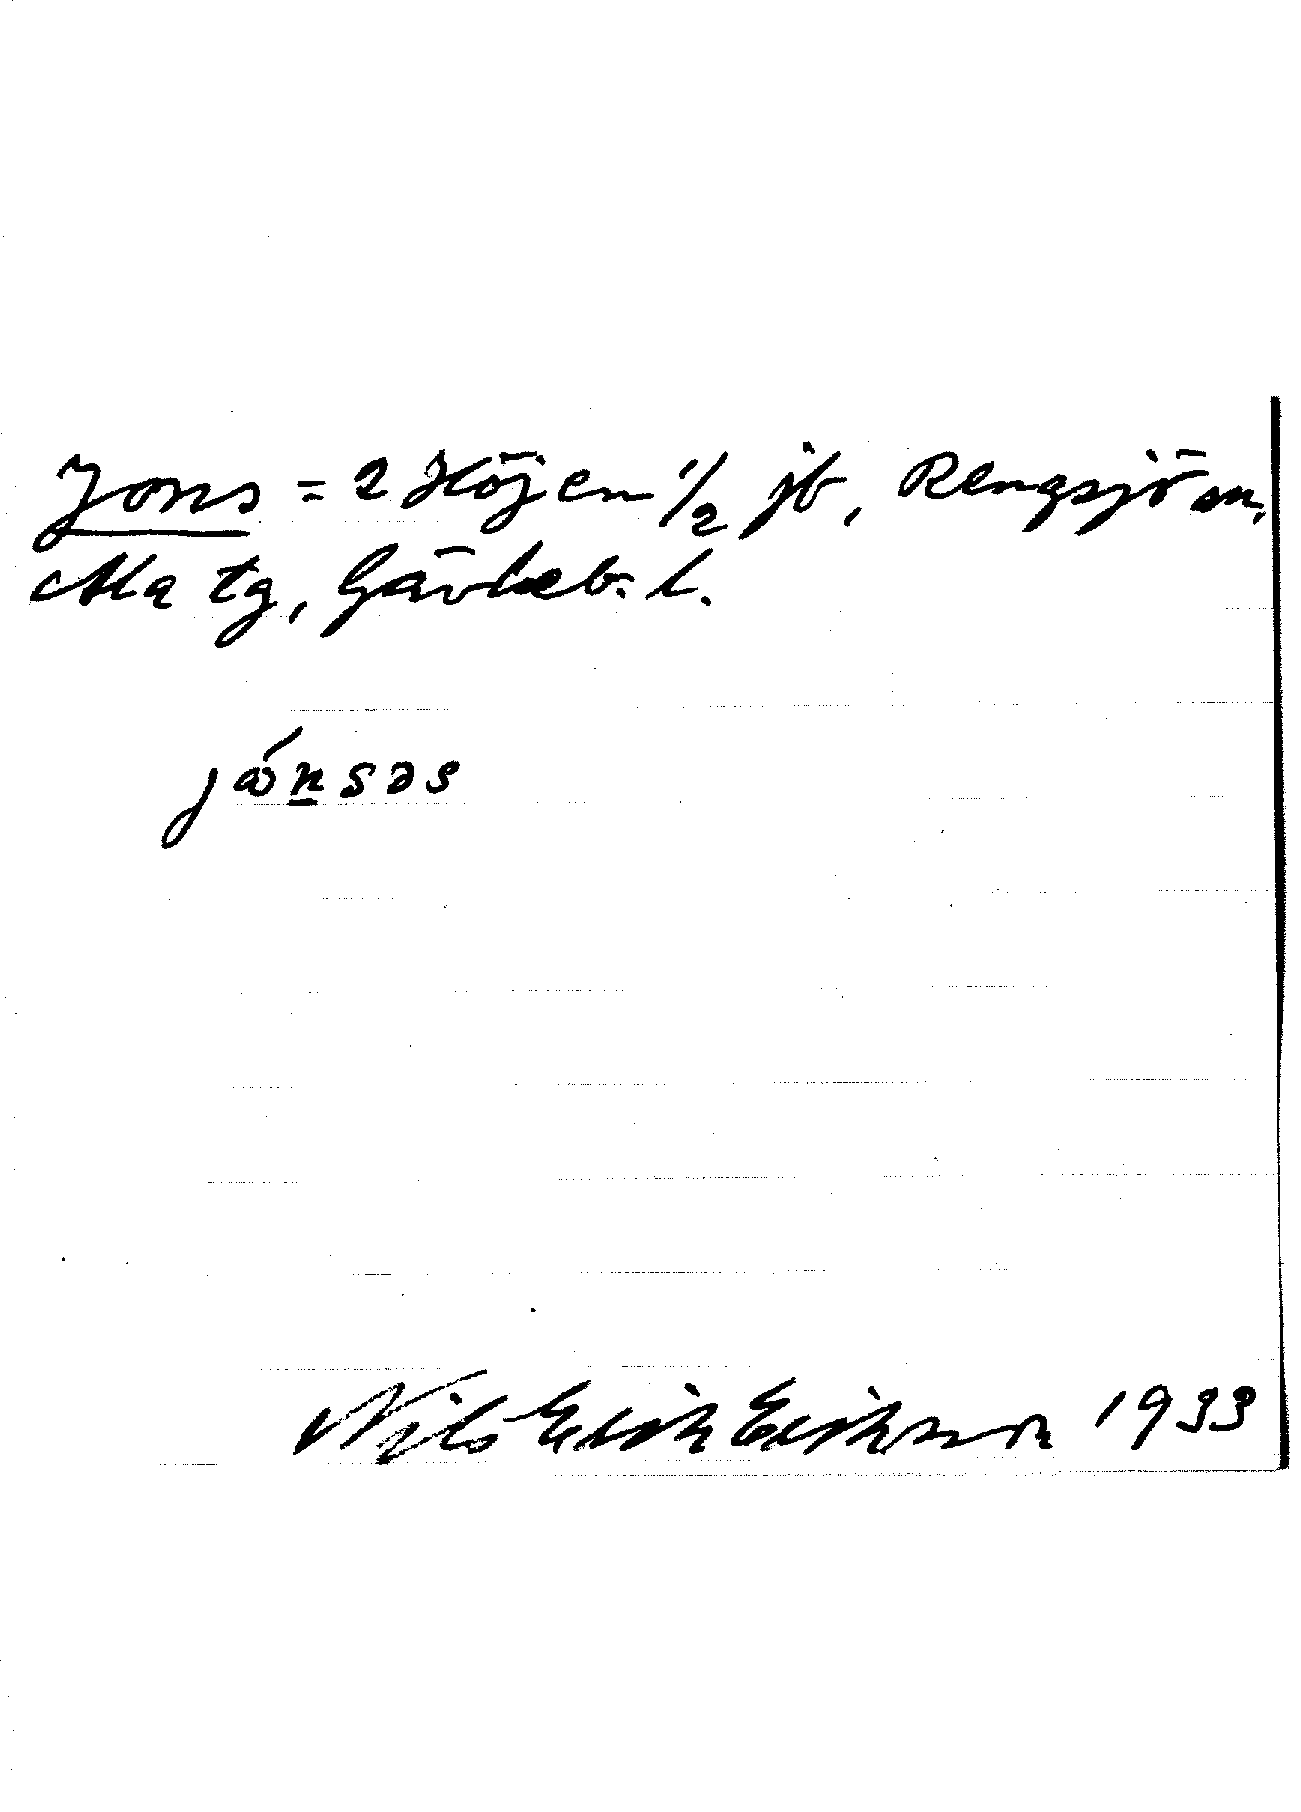 Jons = 2 Höjen 1/2 jb, Rengsjö sn,
Ala tg, Gävleb. l.
jónsəs
Nils Erik Eriksson 1933